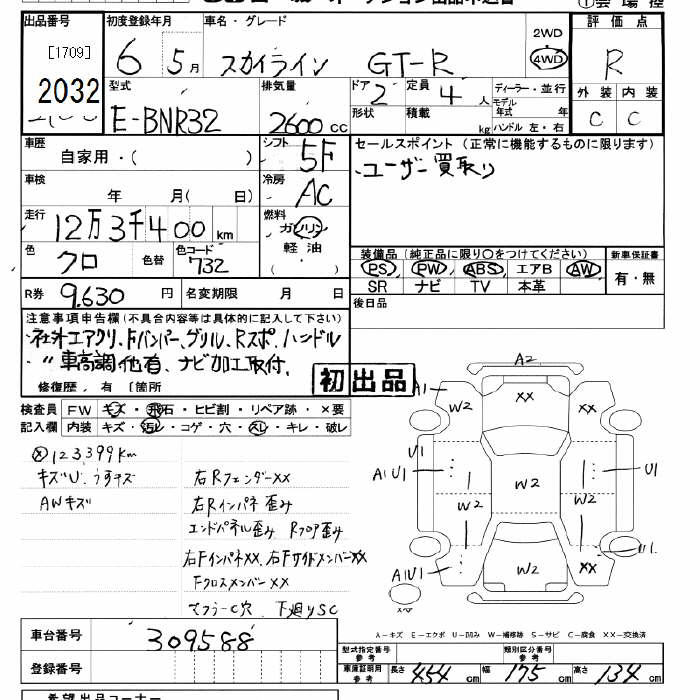 出品番号 初度登録年月 車名・グレード 2WD 評価点
[1709] 6 5月 スカイライン GT-R 4WD R
2032 型式 排気量 ドア 2 定員 4人 ディーラー・並行 外装 内装
E-BNR32 2600cc 形状 積載 kg モデル年式 年 ハンドル 左・右 C C
車歴 シフト 5F セールスポイント(正常に機能するものに限ります)
自家用・( ) ユーザー買取り
車検 冷房 AC
年 月( 日)
走行 12万3千400km 燃料 ガソリン
軽油
( )
色 クロ 色替 色コード 732
装備品(純正品に限り○をつけてください) 新車保証書
PS PW ABS エアB AW 有・無
SR ナビ TV 本革
R券 9.630円 名変期限 月 日 後日品
注意事項申告欄(不具合内容等は具体的に記入して下さい)
社外エアクリ、Fバンパー、グリル、Rスポ、ハンドル
〃 車高調他有、ナビ加工取付、
修復歴、有 [箇所
初出品
検査員 FW キズ・飛石・ヒビ割・リペア跡・×要
記入欄 内装 キズ・汚レ・コゲ・穴・スレ・キレ・破レ
ⓧ123399km
キズU、うすキズ 右Rフェンダー××
AWキズ 右Rインパネ歪み
エンドパネル歪み Rフロア歪み
右Fインパネ××、右Fサイドメンバー××
Fクロスメンバー××
マフラーC穴 下廻りSC
A2
A1 W2 ×× ××
U1 A1U1 U1
W2 W2 W2
U1
A1U1 W2 ××
A-キズ E-エクボ U-凹み W-補修跡 S-サビ C-腐食 ××-交換済
車台番号 309588
登録番号
型式指定番号 参考 類別区分番号 参考
車庫証明用 参考 長さ 454cm 幅 175cm 高さ 134cm
希望出品コーナー